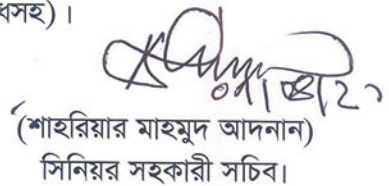 ধসহ)।
(শাহরিয়ার মাহমুদ আদনান)
সিনিয়র সহকারী সচিব।